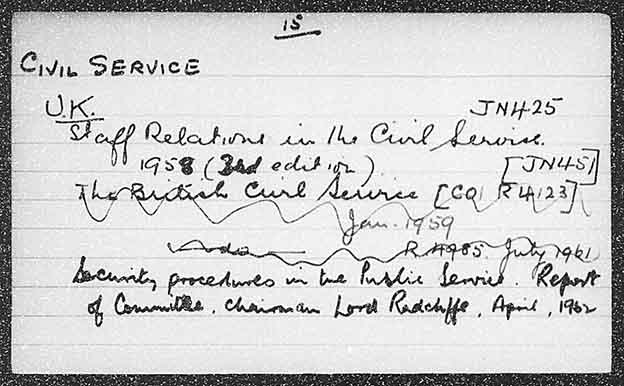 15
CIVIL SERVICE
U.K. JN425
Staff Relations in the Civil Service.
1958 (3rd edition) [JN451]
The British Civil Service [COI R4123]
Jan. 1959
— do — R.4985. July 1961
Security procedures in the Public Service. Report
of Committee. Chairman Lord Radcliffe, April, 1962